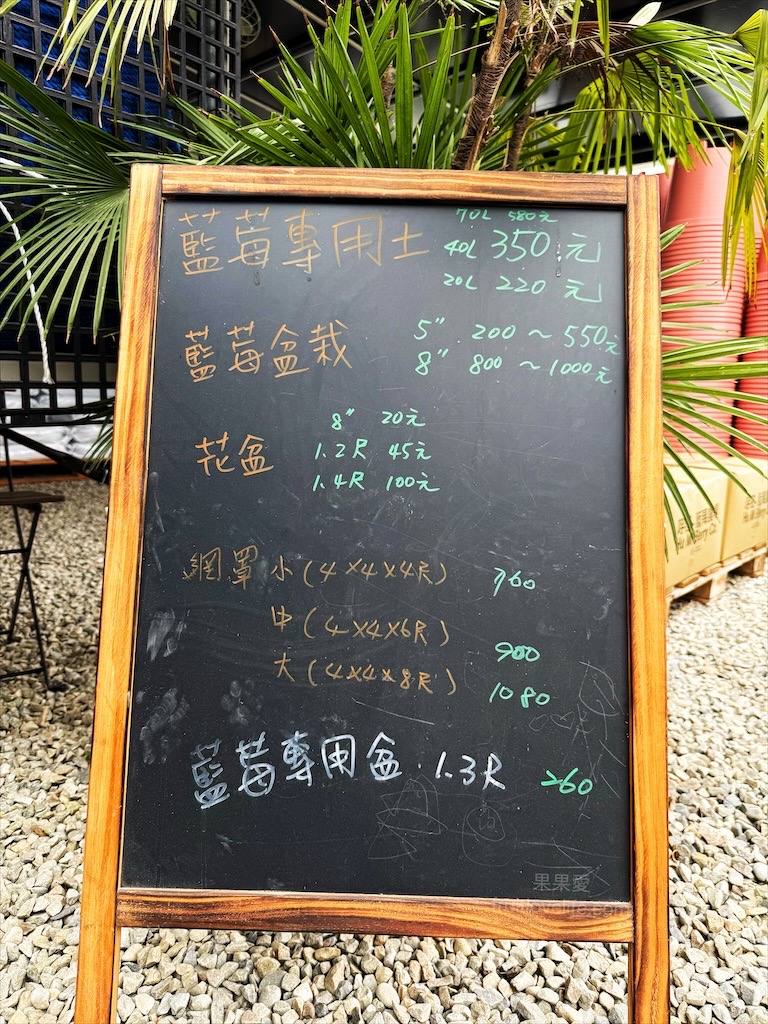 70L 580元
藍莓專用土 40L 350元
20L 220元
藍莓盆栽 5" 200～550元
8" 800～1000元
8" 20元
花盆 1.2尺 45元
1.4尺 100元
網罩 小(4×4×4尺) 760
中(4×4×6尺) 900
大(4×4×8尺) 1080
藍莓專用盆·1.3尺 260
果果愛